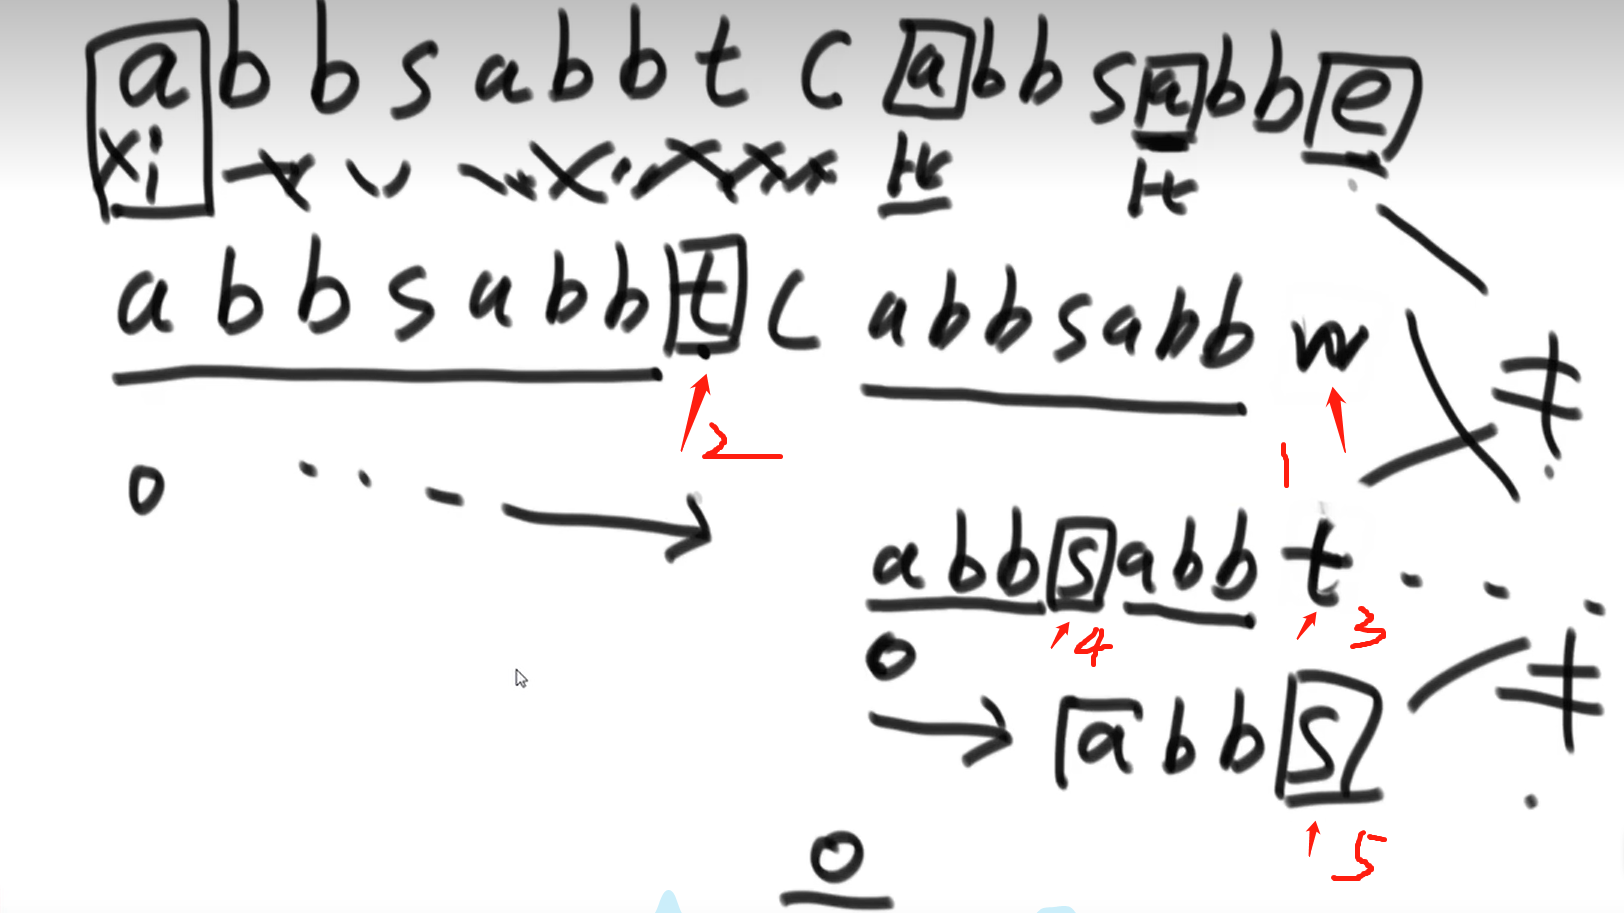 a b b s a b b t c a b b s a b b e
a b b s a b b t c a b b s a b b w
2
1
0
a b b s a b b t
4
3
0
a b b s
5
0